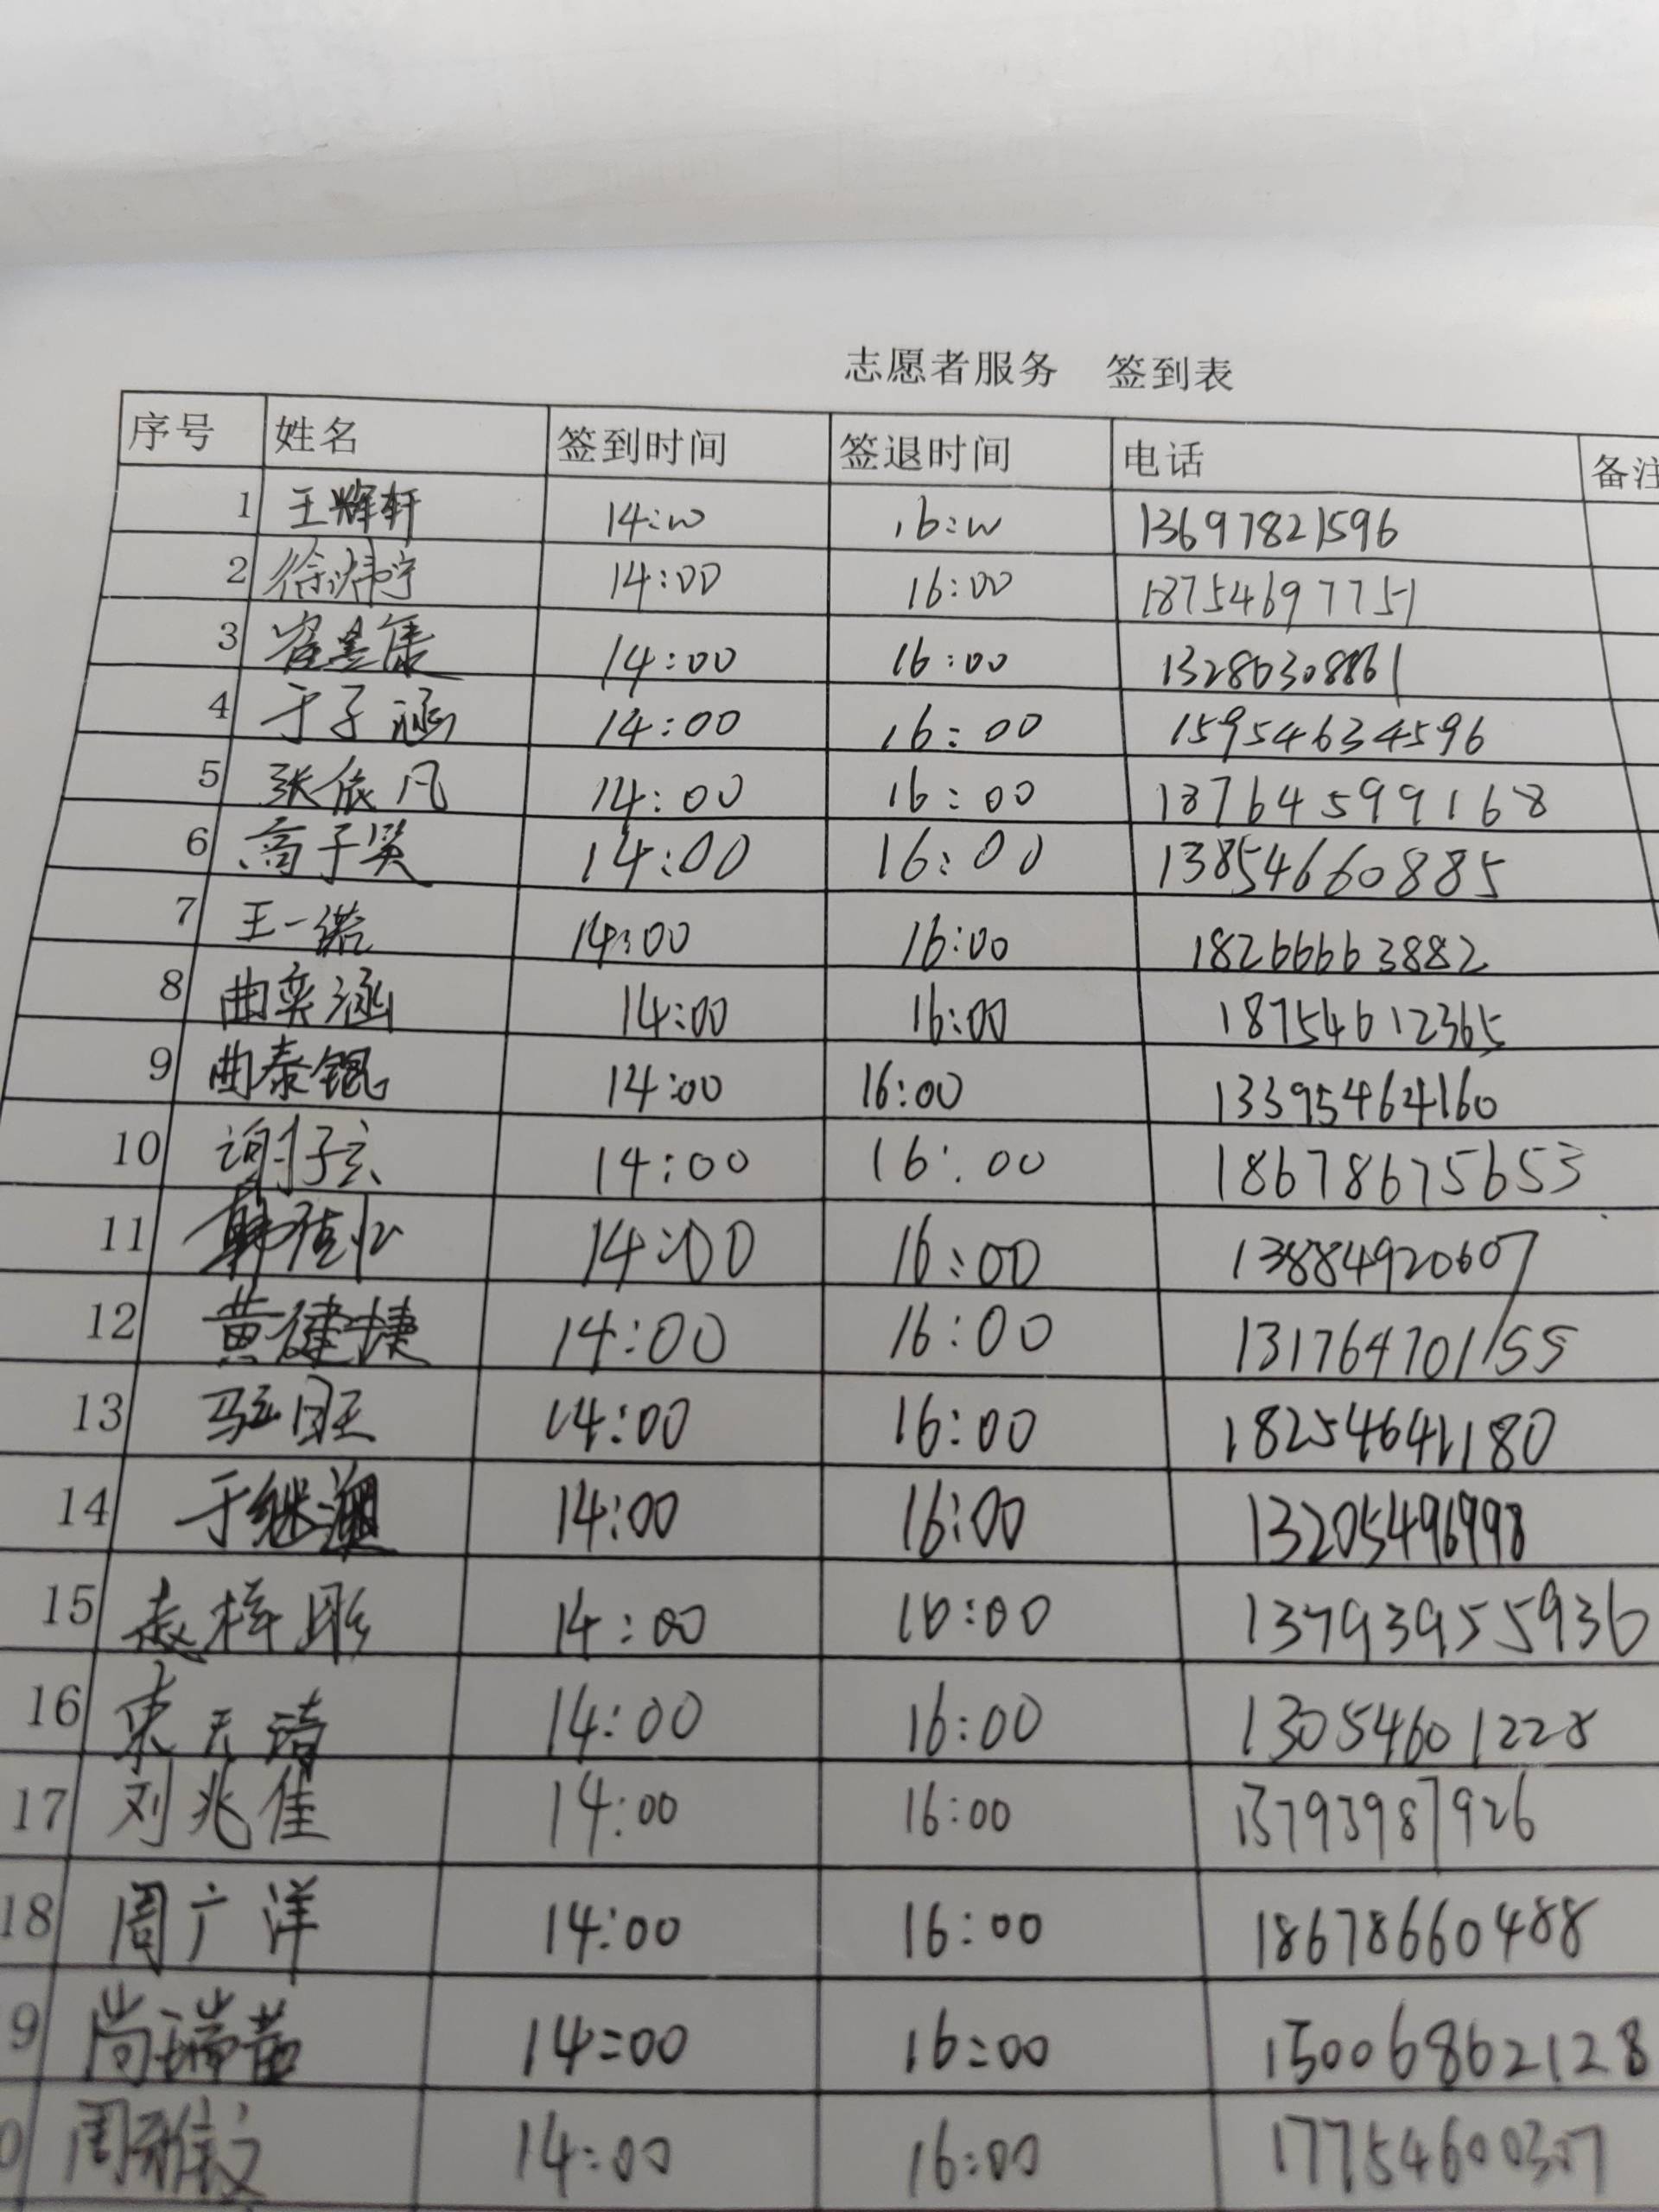 志愿者服务 签到表
序号 姓名 签到时间 签退时间 电话 备注
1 王辉轩 14:00 16:00 13697821596
2 徐炜宁 14:00 16:00 18754697751
3 14:00 16:00 13280308861
4 于子涵 14:00 16:00 15954634596
5 张依凡 14:00 16:00 18764599168
6 高子昊 14:00 16:00 13854660885
7 王一诺 14:00 16:00 18266663882
8 曲奕涵 14:00 16:00 18754612365
9 曲泰锟 14:00 16:00 13395464160
10 谢子玄 14:00 16:00 18678675653
11 14:00 16:00 13884920607
12 黄健捷 14:00 16:00 13176470155
13 14:00 16:00 18254641180
14 于继澳 14:00 16:00 13205496998
15 赵梓彤 14:00 16:00 13793955936
16 14:00 16:00 13054601228
17 刘兆佳 14:00 16:00 13793987926
18 周广洋 14:00 16:00 18678660488
9 尚瑞茜 14:00 16:00 15006862128
0 周雅文 14:00 16:00 17754600307